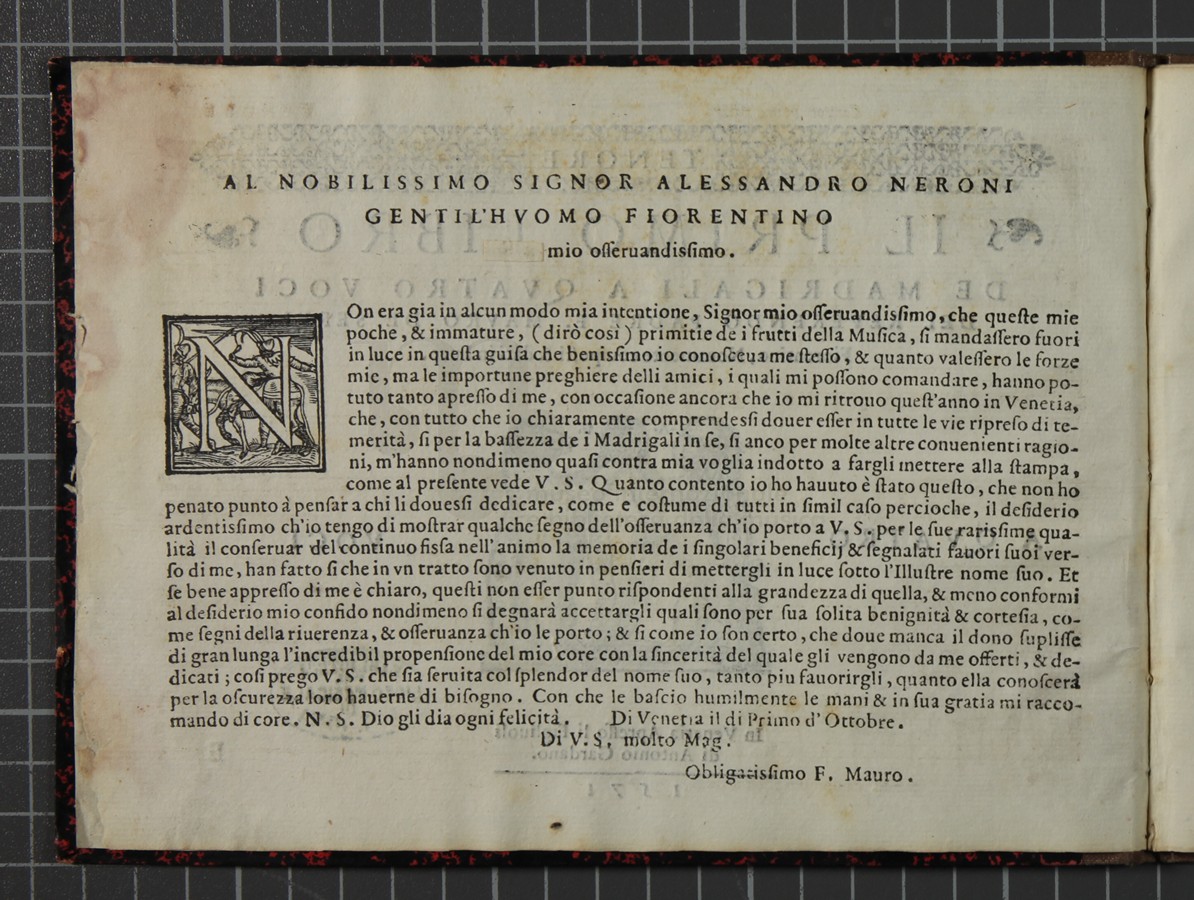 AL NOBILISSIMO SIGNOR ALESSANDRO NERONI
GENTIL'HVOMO FIORENTINO
mio oſſeruandiſſimo.
NOn era gia in alcun modo mia intentione, Signor mio oſſeruandiſſimo, che queſte mie
poche, & immature, (dirò cosi) primitie de i frutti della Muſica, ſi mandaſſero fuori
in luce in queſta guiſa che beniſſimo io conoſceua me ſteſſo, & quanto valeſſero le forze
mie, ma le importune preghiere delli amici, i quali mi poſſono comandare, hanno po-
tuto tanto apreſſo di me, con occaſione ancora che io mi ritrouo queſt'anno in Venetia,
che, con tutto che io chiaramente comprendesſi douer eſſer in tutte le vie ripreſo di te-
merità, ſi per la baſſezza de i Madrigali in ſe, ſi anco per molte altre conuenienti ragio-
ni, m'hanno nondimeno quaſi contra mia voglia indotto a fargli mettere alla ſtampa,
come al preſente vede V. S. Quanto contento io ho hauuto è ſtato queſto, che non ho
penato punto à penſar a chi li douesſi dedicare, come e coſtume di tutti in ſimil caſo percioche, il deſiderio
ardentisſimo ch'io tengo di moſtrar qualche ſegno dell'oſſeruanza ch'io porto a V. S. per le ſue rarisſime qua-
lità il conſeruar del continuo fisſa nell'animo la memoria de i ſingolari beneficij & ſegnalati fauori ſuoi ver-
ſo di me, han fatto ſi che in vn tratto ſono venuto in penſieri di mettergli in luce ſotto l'Illuſtre nome ſuo. Et
ſe bene appreſſo di me è chiaro, queſti non eſſer punto riſpondenti alla grandezza di quella, & meno conformi
al deſiderio mio confido nondimeno ſi degnarà accettargli quali ſono per ſua ſolita benignità & corteſia, co-
me ſegni della riuerenza, & oſſeruanza ch'io le porto; & ſi come io ſon certo, che doue manca il dono ſupliſſe
di gran lunga l'incredibil propenſione del mio core con la ſincerità del quale gli vengono da me offerti, & de-
dicati; coſi prego V. S. che ſia ſeruita col ſplendor del nome ſuo, tanto piu fauorirgli, quanto ella conoſcerà
per la oſcurezza loro hauerne di biſogno. Con che le baſcio humilmente le mani & in ſua gratia mi racco-
mando di core. N. S. Dio gli dia ogni felicità. Di Venetia il di Primo d'Ottobre.
Di V. S. molto Mag.
Obligatisſimo F. Mauro.